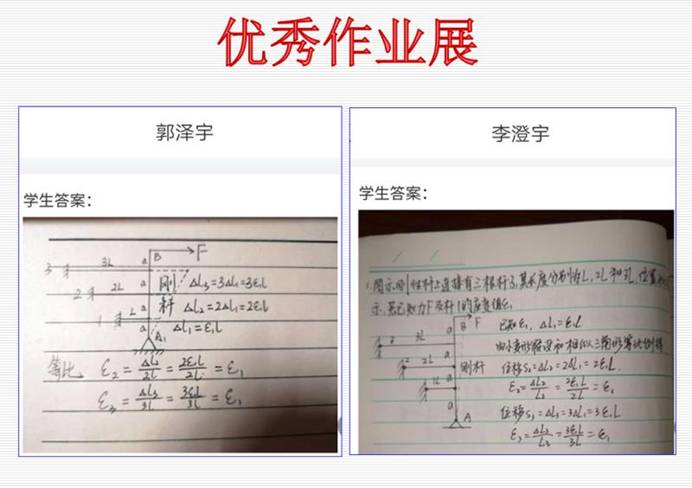 优秀作业展
郭泽宇
学生答案：
3 3L a B F
2 2L a 刚 ΔL₃=3ΔL₁=3ε₁L
杆 ΔL₂=2ΔL₁=2ε₁L
1 L a A ΔL₁=ε₁L
等比 ε₂=ΔL₂/2L=2ε₁L/2L=ε₁
ε₃=ΔL₃/3L=3ε₁L/3L=ε₁
李澄宇
学生答案：
图示刚性杆上连接有三根杆子,其长度分别为L,2L和3L,位置
示,若已知力F及杆1的应变值ε₁
B F 已知ε₁, ΔL₁=ε₁L
3L a 由小变形假设和相似三角形等比例得
2L a 刚杆 位移S₂=ΔL₂=2ΔL₁=2ε₁L
a ε₂=ΔL₂/L₂=2ε₁L/2L=ε₁
a A 位移S₃=ΔL₃=3ΔL₁=3ε₁L
ε₃=ΔL₃/L₃=3ε₁L/3L=ε₁